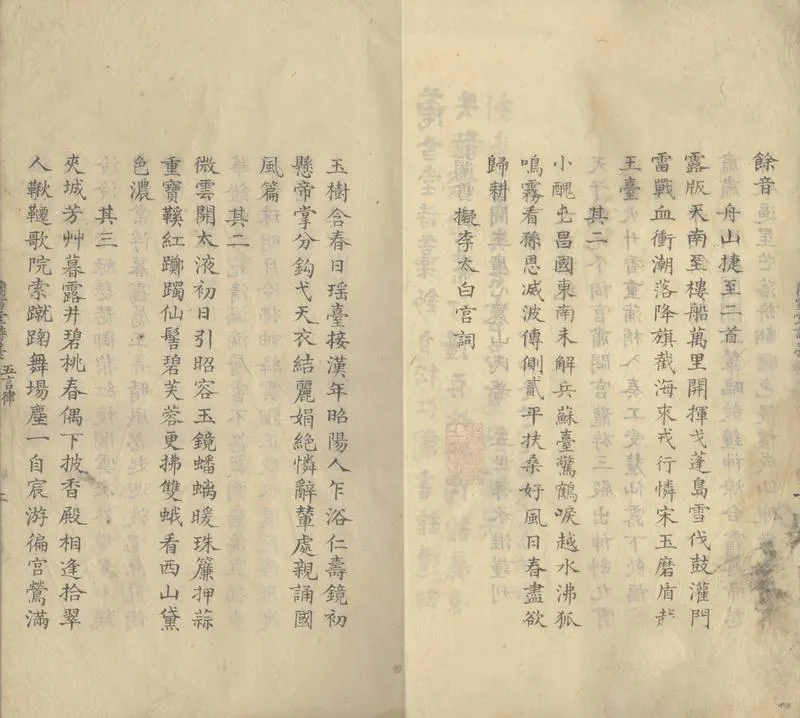 餘音
舟山捷至二首
露版天南至樓船萬里開揮戈蓬島雪伐鼓灌門
雷戰血衝潮落降旗截海來戎行憐宋玉磨盾赴
王臺
其二
小醜屯昌國東南未解兵蘇臺驚鶴唳越水沸狐
鳴霧看孫恩滅波傳側貳平扶桑好風日春盡欲
歸耕
擬李太白宮詞
玉樹含春日瑤臺接漢年昭陽人乍浴仁壽鏡初
懸帝掌分鈎弋天衣結麗娟絕憐辭輦處親誦國
風篇
其二
微雲開太液初日引昭容玉鏡蟠螭暖珠簾押蒜
重寶鞵紅躑躅仙髻碧芙蓉更拂雙蛾看西山黛
色濃
其三
夾城芳艸暮露井碧桃春偶下披香殿相逢拾翠
人鞦韆歌院索蹴踘舞場塵一自宸游徧宮鶯滿
五言律